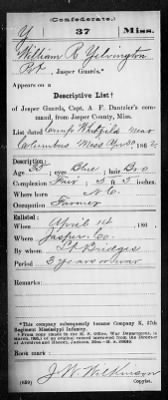 (Confederate.)
Y 37 Miss.
William R Yelvington
Pvt., Jasper Guards.*
Appears on a
Descriptive List†
of Jasper Guards, Capt. A. F. Dantzler's com-
mand, from Jasper County, Miss.
List dated Camp near
Columbus Miss Apr 30, 186
Age 33; eyes Blue; hair Bro
Complexion Fair; 5 ft. in.
Where born N.C.
Occupation Farmer
Enlisted:
When April 1st, 186 .
Where Jasper Co.
By whom Bridges
Period 3 years or war
*This company subsequently became Company K, 37th
Regiment Mississippi Infantry.
Book mark:
J. W. Wilkinson
(639) Copyist.